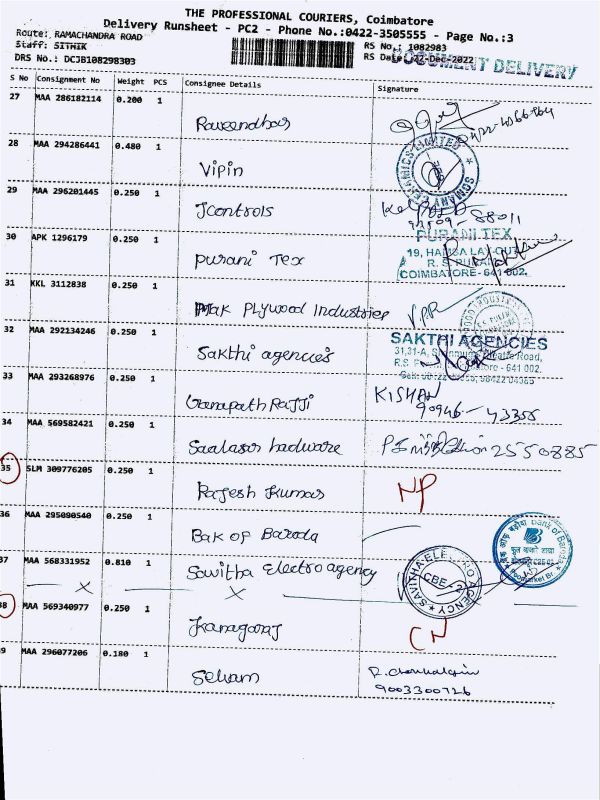 THE PROFESSIONAL COURIERS, Coimbatore
Delivery Runsheet - PC2 - Phone No.:0422-3505555 - Page No.:3
Route: RAMACHANDRA ROAD
Staff: SITHIK
DRS No.: DCJB108298303
RS No.: 1082983
RS Date: 22-Dec-2022
DOCUMENT DELIVERY
S No Consignment No Weight PCS Consignee Details Signature
27 MAA 286182114 0.200 1
Raveendhar
28 MAA 294286441 0.480 1
Vipin
29 MAA 296201445 0.250 1
Jcontrols
88011
30 APK 1296179 0.250 1
purani Tex
PURANI TEX
19, HAMSA LAY-OUT
R. S. PURAM
COIMBATORE - 641 002.
31 KKL 3112838 0.250 1
Mak Plywood Industries
V.PR
32 MAA 292134246 0.250 1
Sakthi agencies
SAKTHI AGENCIES
31,31-A, Road,
R.S. - 641 002.
33 MAA 293268976 0.250 1
Ganapath Raffi
KISHAN
90946-43355
34 MAA 569582421 0.250 1
Saalasar hadware
2550885
35 SLM 309776205 0.250 1
Rajesh Kumar
NP
36 MAA 295090540 0.250 1
Bak of Baroda
Bank of Baroda
37 MAA 568331952 0.810 1
Savitha Electro agency
SAVITHA ELECTRO AGENCY
CBE - 2
X X
38 MAA 569340977 0.250 1
Kanagaraj
CN
39 MAA 296077206 0.180 1
Selvam
9003300726